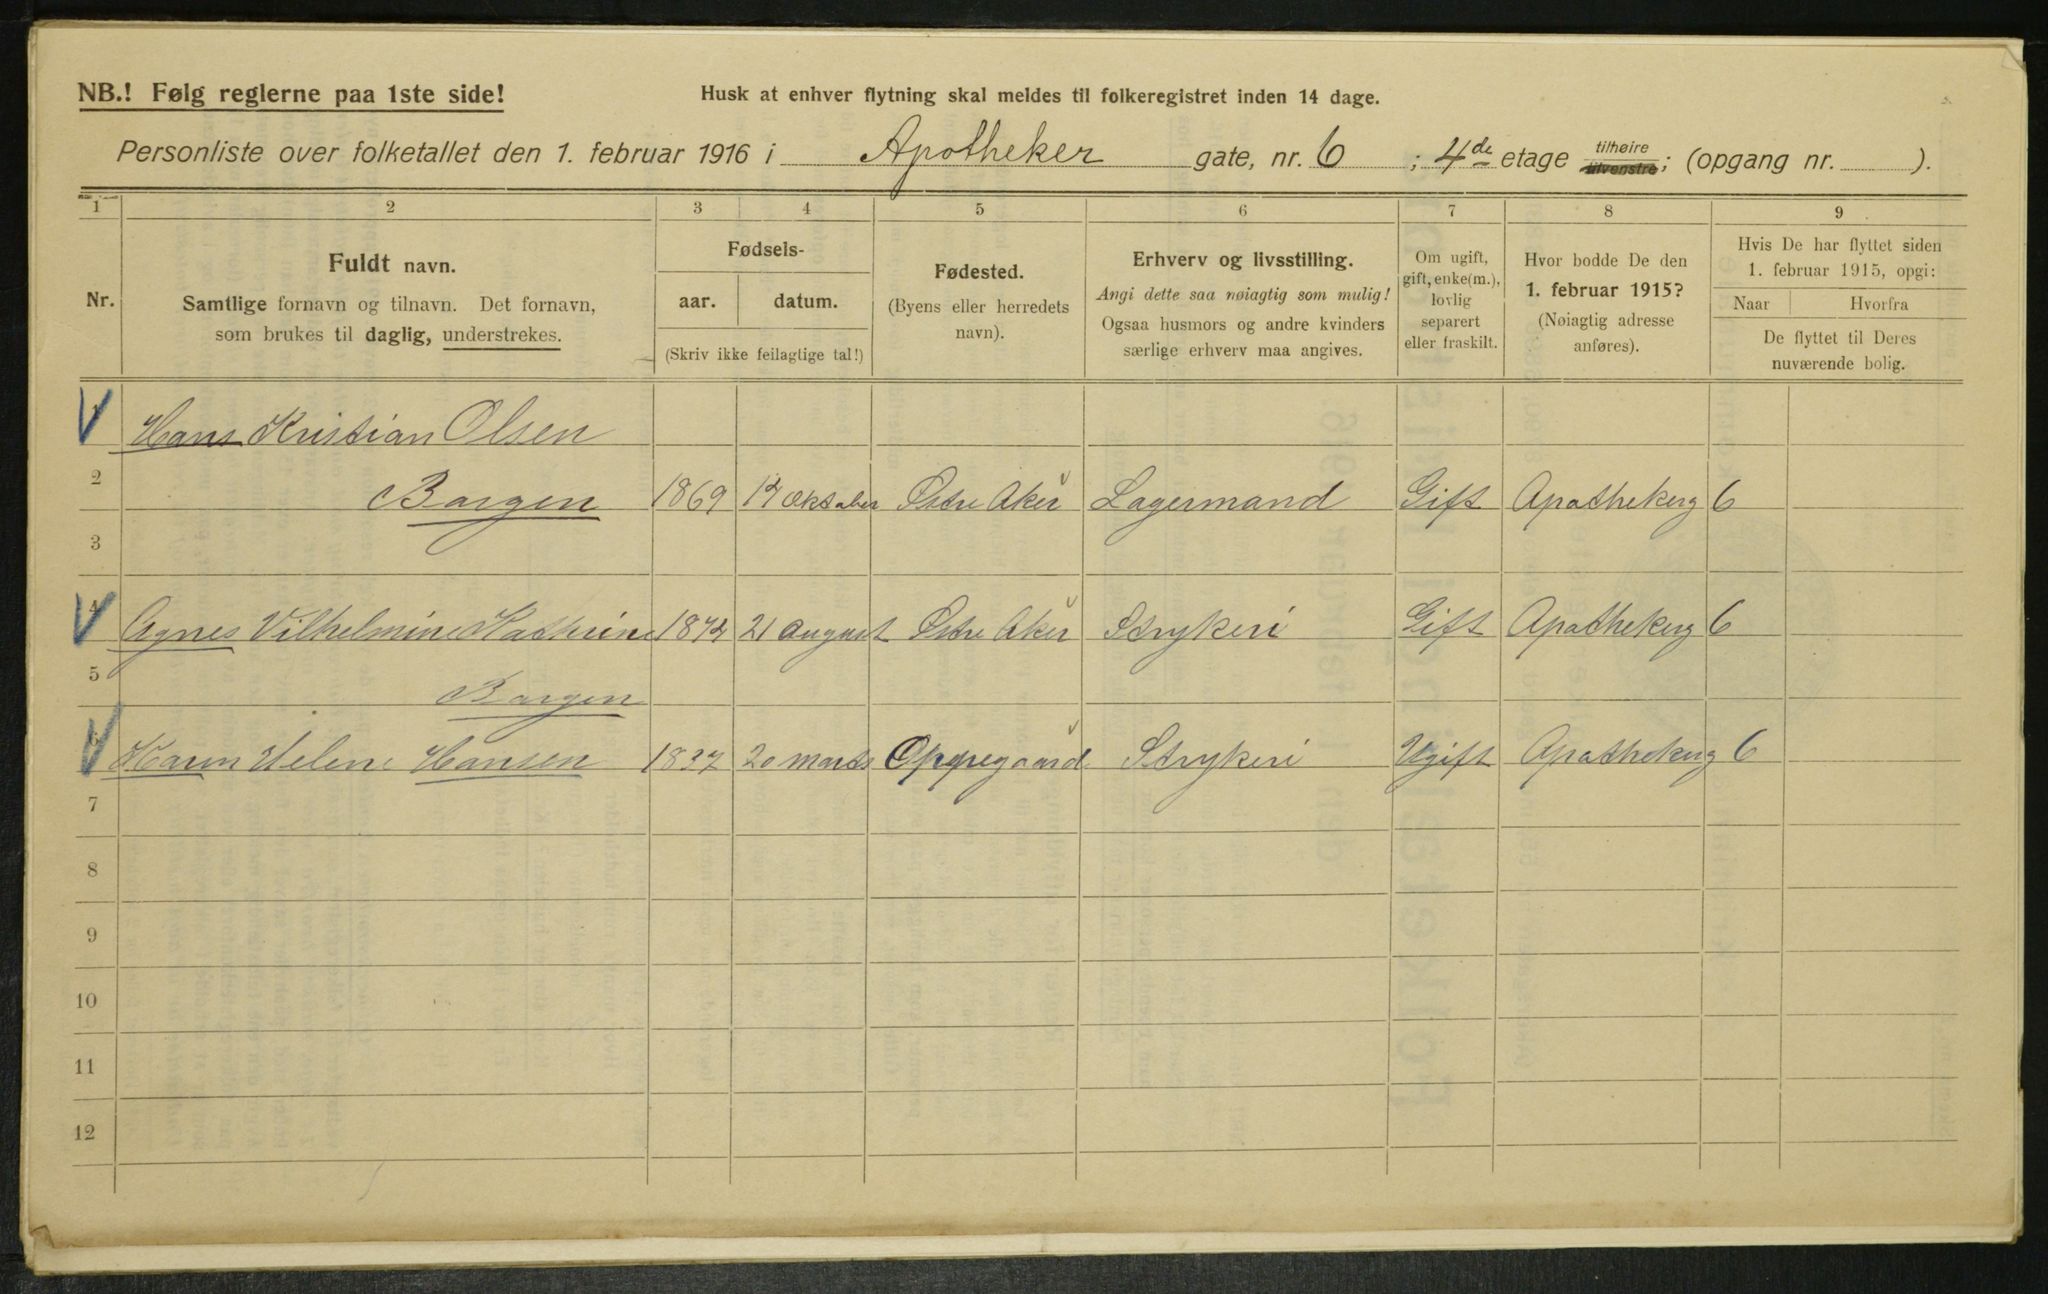 NB.! Følg reglerne paa 1ste side!
Husk at enhver flytning skal meldes til folkeregistret inden 14 dage.
Personliste over folketallet den 1. februar 1916 i Apotheker gate, nr. 6 ; 4de etage tilhøire tilvenstre; (opgang nr. ).
1 2 3 4 5 6 7 8 9
Nr.
Fuldt navn.
Samtlige fornavn og tilnavn. Det fornavn,
som brukes til daglig, understrekes.
Fødsels-
aar. datum.
(Skriv ikke feilagtige tal!)
Fødested.
(Byens eller herredets
navn).
Erhverv og livsstilling.
Angi dette saa nøiagtig som mulig!
Ogsaa husmors og andre kvinders
særlige erhverv maa angives.
Om ugift,
gift, enke(m.),
lovlig
separert
eller fraskilt.
Hvor bodde De den
1. februar 1915?
(Nøiagtig adresse
anføres).
Hvis De har flyttet siden
1. februar 1915, opgi:
Naar Hvorfra
De flyttet til Deres
nuværende bolig.
1 Hans Kristian Olsen
2 Bargen 1869 Oktober Østre Aker Lagermand Gift Apothekerg 6
3
4 Agnes Vilhelmine Kathrine 21 august Østre Aker Strykeri Gift Apothekerg 6
5 Bargen
6 Karen Helene Hansen 1837 20 Marts Oppegaard Strykeri Ugift Apothekerg 6
7
8
9
10
11
12